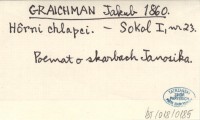 GRAICHMAN Jakub 1860.
Hôrni chlapci. — Sokol I, nr. 23.
Poemat o skarbach Janosika.